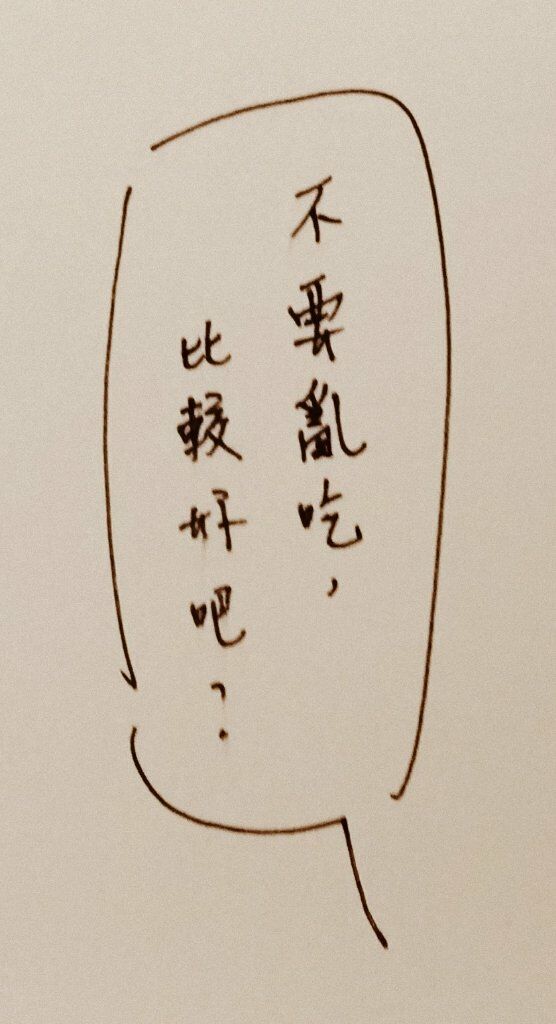 不要亂吃，
比較好吧？